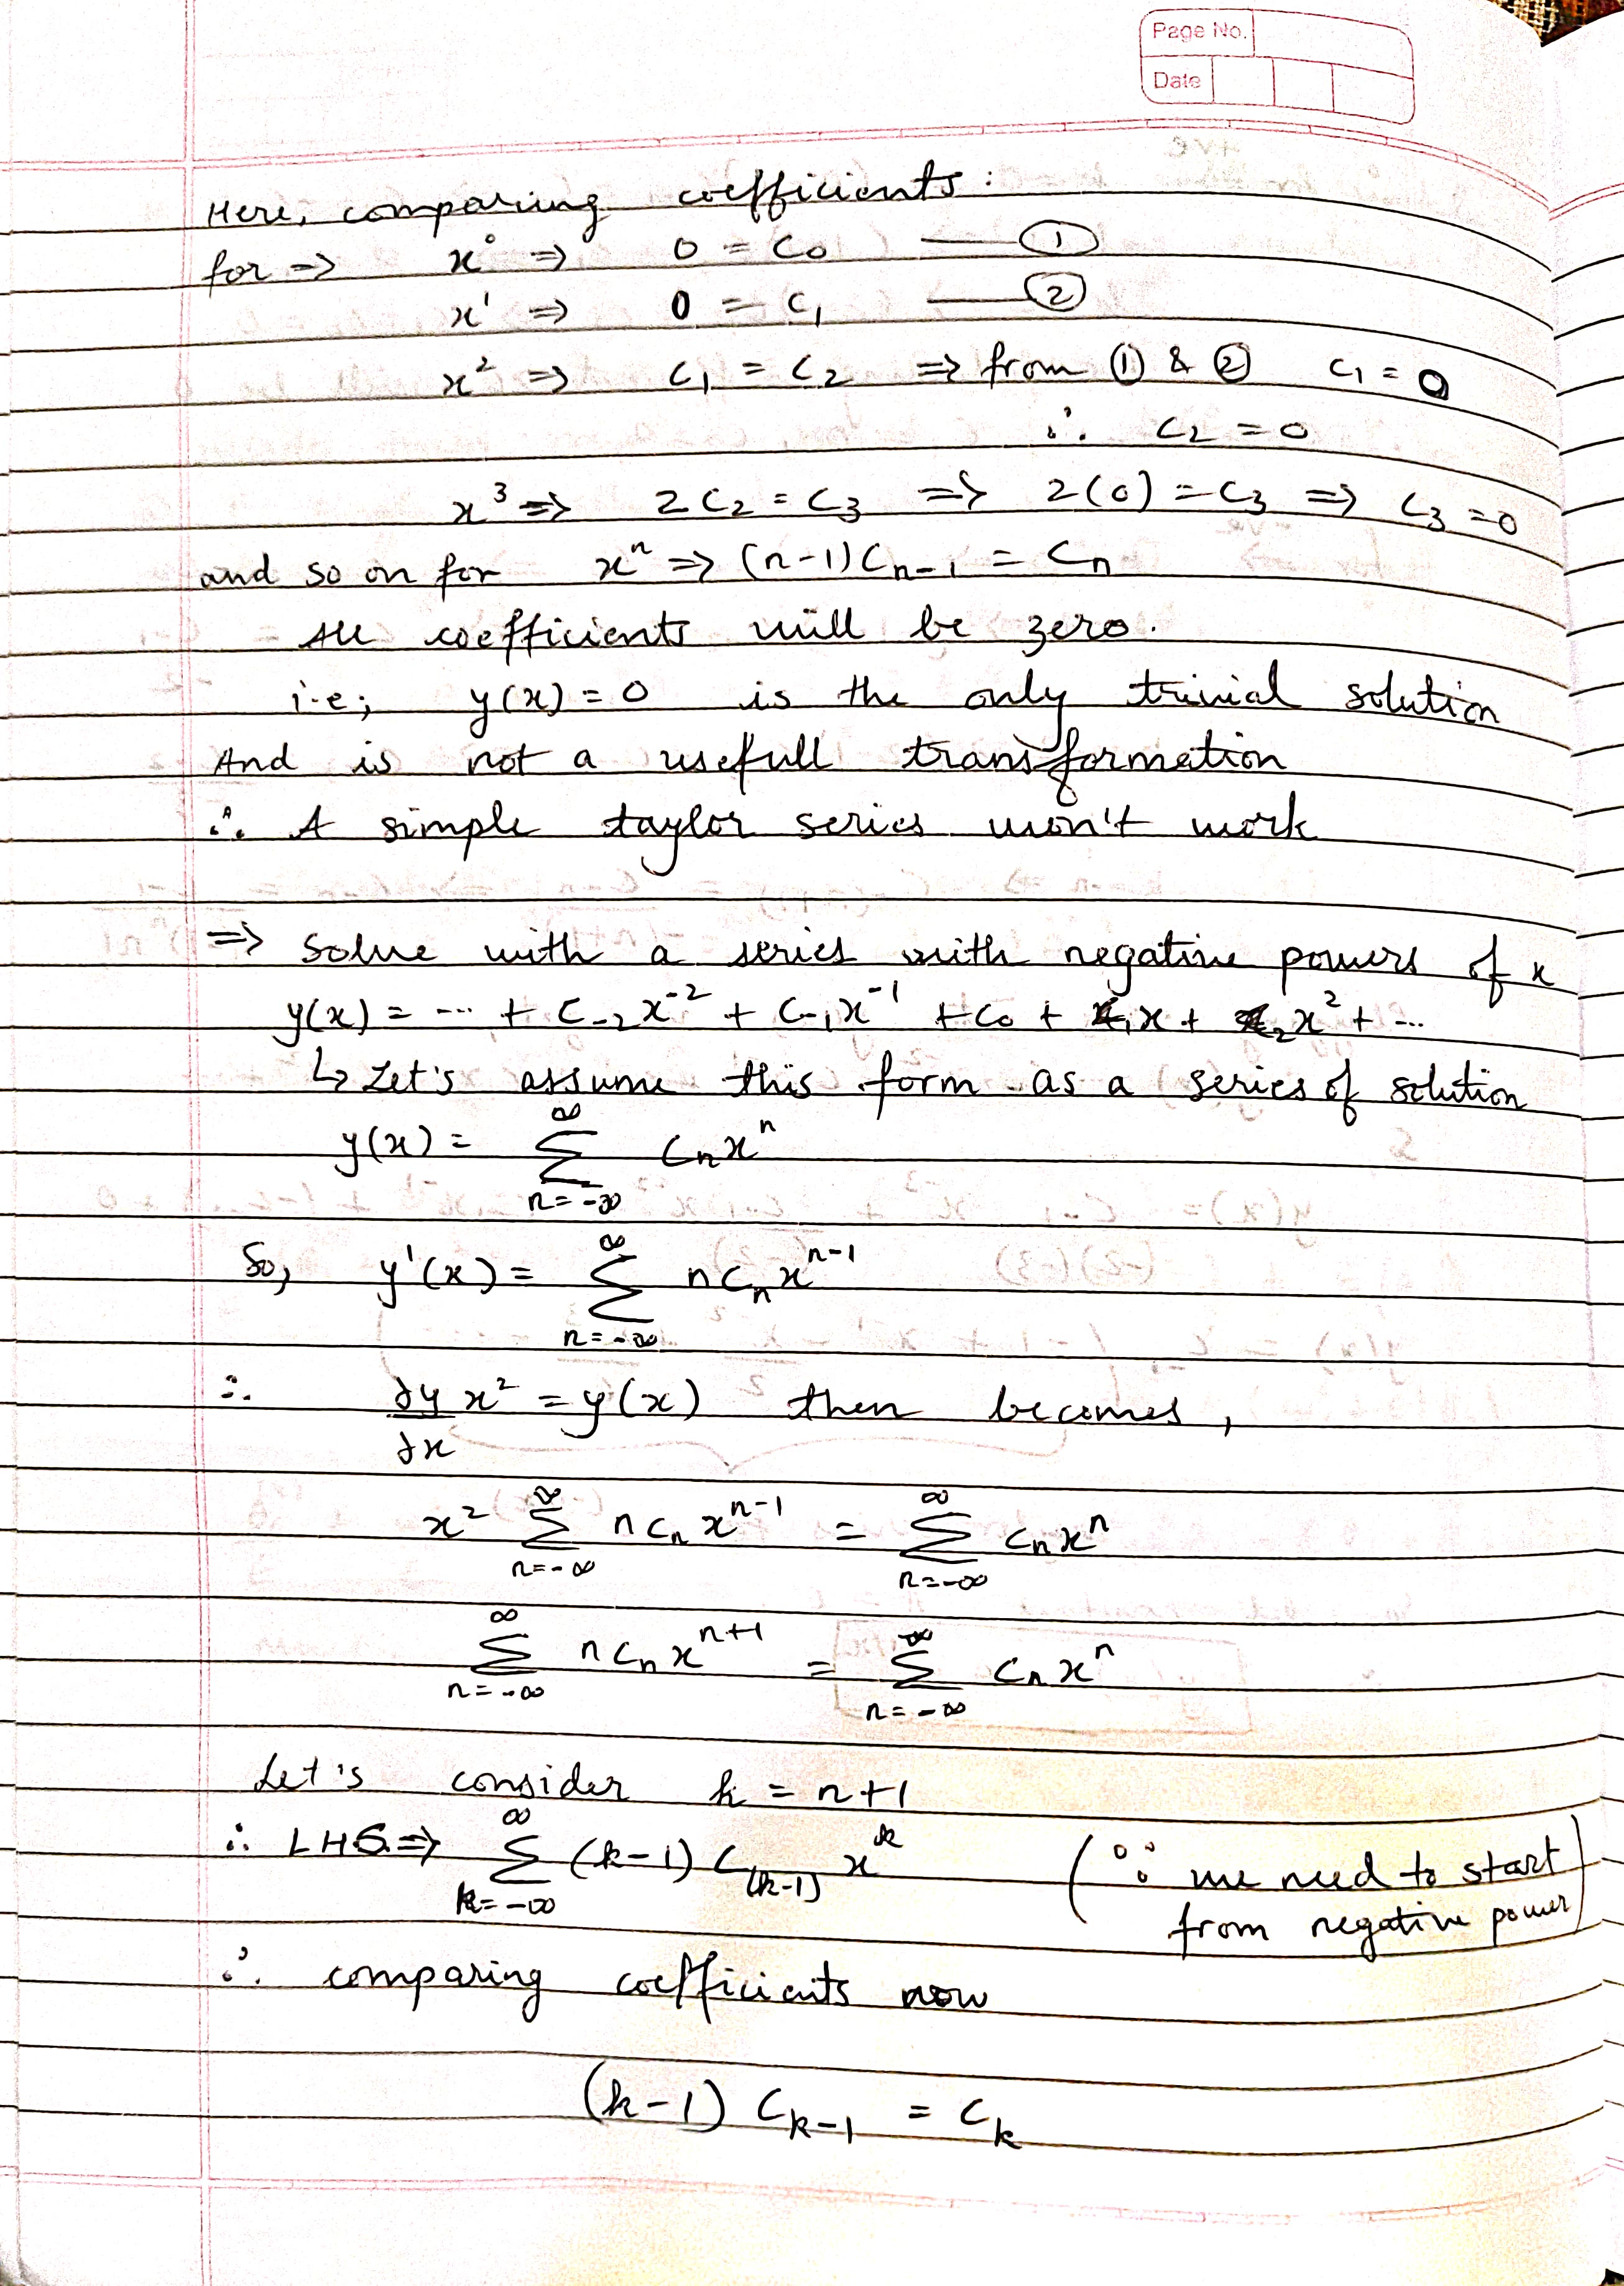 Page No.
Date
Here, comparing coefficients:
for => x⁰ => 0 = C₀ —— ①
x¹ => 0 = C₁ —— ②
x² => C₁ = C₂ => from ① & ② C₁ = 0
∴ C₂ = 0
x³ => 2C₂ = C₃ => 2(0) = C₃ => C₃ = 0
and so on for xⁿ => (n-1)Cₙ₋₁ = Cₙ
All coefficients will be zero.
i.e; y(x) = 0 is the only trivial solution
And is not a usefull transformation
∴ A simple taylor series won't work
=> Solve with a series with negative powers of x
y(x) = ... + C₋₂x⁻² + C₋₁x⁻¹ + C₀ + C₁x + C₂x² + ...
↳ Let's assume this form as a series of solution
y(x) = ∑_{n=-∞}^{∞} Cₙxⁿ
So, y'(x) = ∑_{n=-∞}^{∞} nCₙxⁿ⁻¹
∴ dy/dx x² = y(x) then becomes,
x² ∑_{n=-∞}^{∞} nCₙxⁿ⁻¹ = ∑_{n=-∞}^{∞} Cₙxⁿ
∑_{n=-∞}^{∞} nCₙxⁿ⁺¹ = ∑_{n=-∞}^{∞} Cₙxⁿ
Let's consider k = n+1
∴ LHS => ∑_{k=-∞}^{∞} (k-1) C₍ₖ₋₁₎ xᵏ (∵ we need to start
from negative power)
∴ comparing coefficients now
(k-1) Cₖ₋₁ = Cₖ